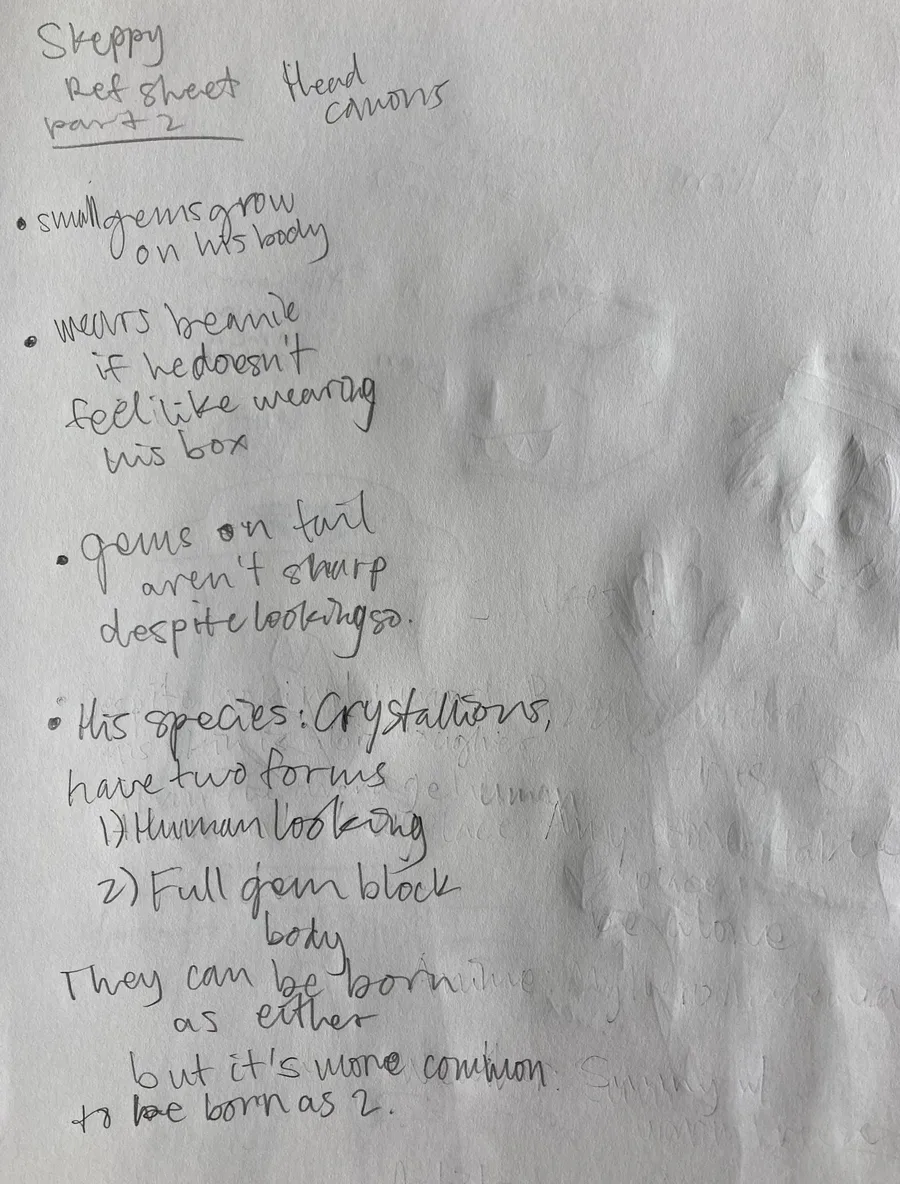 Skeppy
Ref sheet
part 2
Head
canons
• small gems grow
on his body
• wears beanie
if he doesn't
feel like wearing
his box
• gems on tail
aren't sharp
despite looking so.
• His species: Crystallions,
have two forms
1) Human looking
2) Full gem block
body
They can be born
as either
but it's more common
to be born as 2.